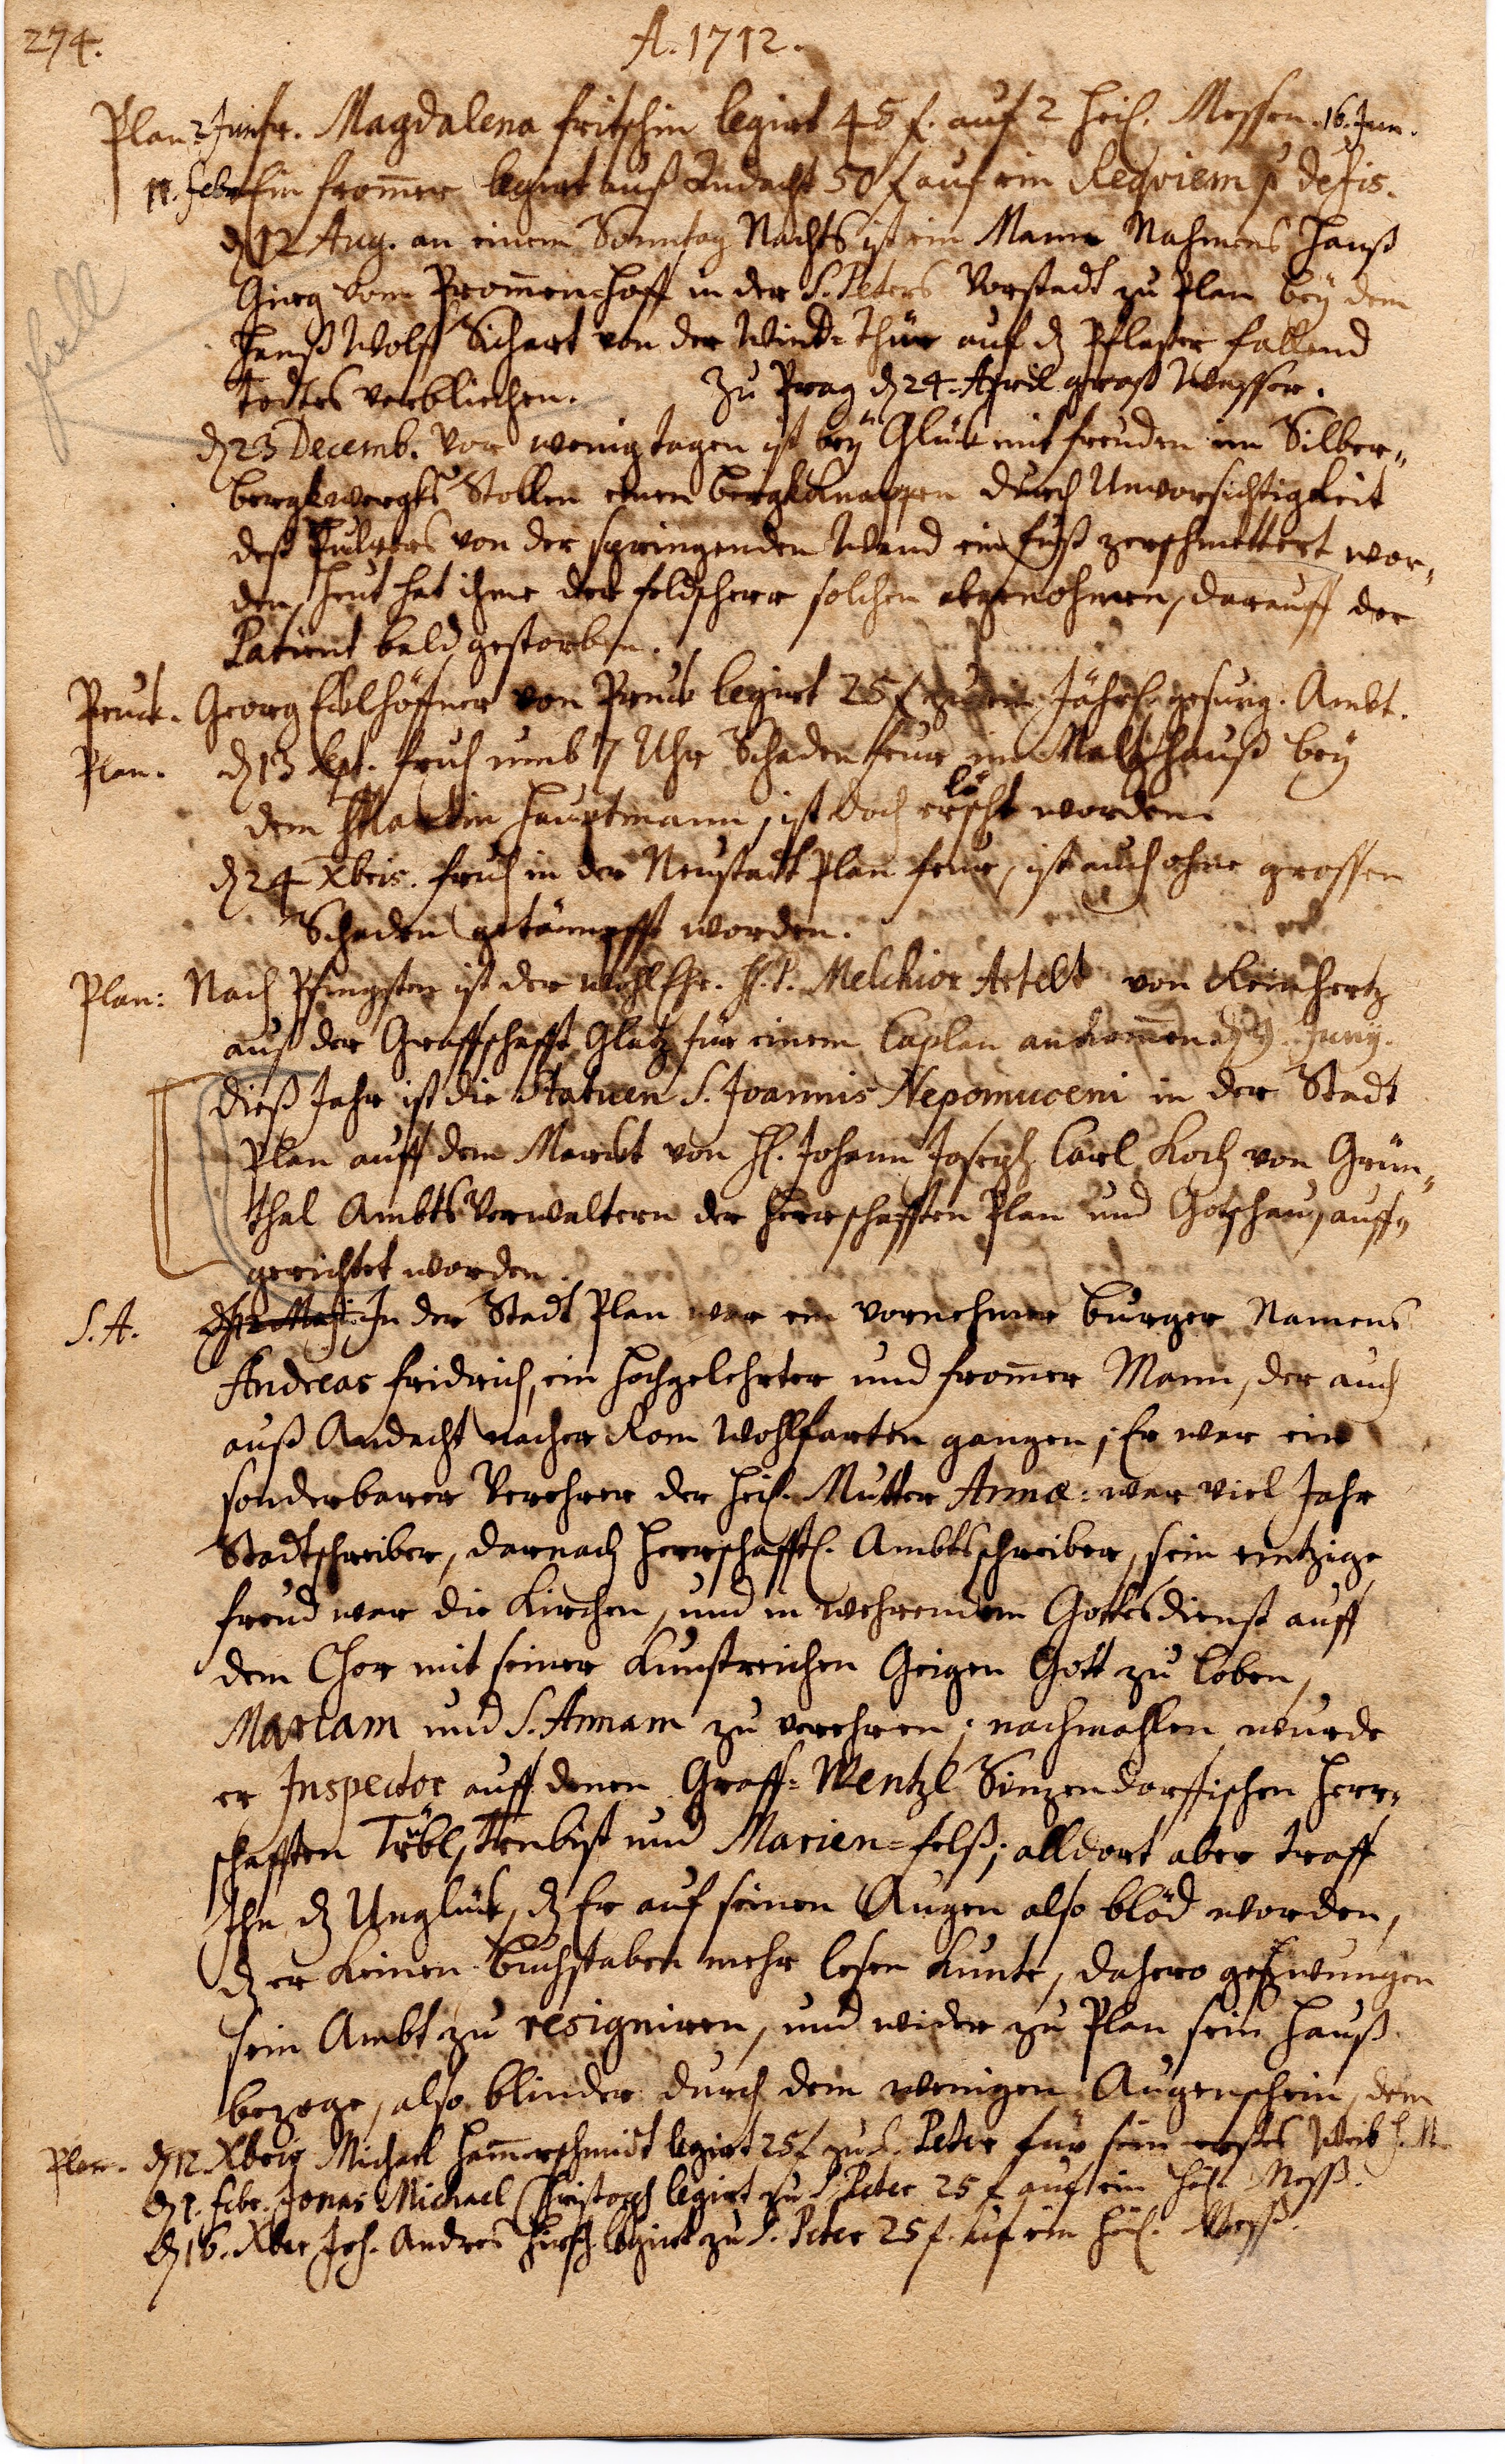 274.
A. 1712.
Plan 2 Junfr. Magdalena Fritschin legirt 45 f. auf 2 heil. Messen. 16. Jun.
11. Febr Ein fromer legirt auß Andacht 50 f auf ein Reqviem p Defis.
dz 12 Aug. an einem Sonntag Nachts ist ein Mann Nahmens Hanß
Girg vom Promenhoff in der S. Peters Vorstadt zu Plan beÿ dem
Hanß Wolf Sichert von der Wind-Thür auf dz Pflaster fallend
todtes verbliechen. Zu Prag dz 24. April groß Wasser.
dz 23 Decemb. Vor wenig tagen ist beÿ Glück mit freuden im Silber„
bergkwergks Stollen einen Bergkknappen durch Unvorsichtigkeit
deß Pulvers von der springenden Wand ein fuß zerschmettert wor„
den, heut hat ihme der feldscherr solchen abgenohmen, darauff der
Patient bald gestorben.
Pruck. Georg Ecklhöffner von Pruck legirt 25 f zu ein Jährl. gesung. Ambt.
Plan. dz 13 Sept. fruh umb 7 Uhr Schadenfeur im Maltzhauß beÿ
dem Martin Hauptmann, ist doch erlöscht worden.
dz 24 Xbris. fruh in der Neustadt Plan feur, ist auch ohne grossen
Schaden getämpfft worden.
Plan: Nach Pfingsten ist der WohlEhr. H. P. Melchior Artelt von Reinhertz
auß der Graffschafft Glatz für einem Caplan ankomen dz 9. Junÿ.
dieß Jahr ist die Statuen S. Joannis Nepomuceni in der Stadt
Plan auff dem Marckt von H. Johann Joseph Carl Koch von Grün„
thal Ambts Verwaltern der Herrschafften Plan und Gotschau, auff„
gerichtet worden.
S. A. In der Stadt Plan war ein vornehmer Burger Namens
Andreas Fridrich, ein hochgelehrter und fromer Mann, der auch
auß Andacht nacher Rom Wohlfarten gangen; Er war ein
sonderbarer Verehrer der heil. Mutter Annæ: war viel Jahr
Stadtschreiber, darnach herrschafftl. Ambtsschreiber, sein eintzige
freud war die Kirchen, und in wehrendem Gottesdienst auff
dem Chor mit seiner Kunstreichen Geigen Gott zu loben,
Mariam und S. Annam zu verehren; nachmahlen wurde
er Inspector auff denen Graff-Wentzl Sinzendorffischen Herr„
schafften Tröbl, Trnbist und Marien-felß; alldort aber traff
Ihn dz Unglück, dz Er auf seinen Augen also blöd worden,
dz er Keinen Buchstaben mehr lesen Kunte, dahero gezwungen
sein Ambt zu resigniren, und wider zu Plan sein Hauß
bezoge, also blinder durch dem wenigen Augenschein, dem
Plan. dz 12. Xbris Michael Hamerschmidt legirt 25 f zu S. Peter für sein erstes Weib
dz 1. Febr. Jonas Michael Christoph legirt zu S. Peter 25 f auf ein heil. Meß.
dz 16. Xber Joh. Andres Hirsch legirt zu S. Peter 25 f. auf ein heil. Meß.